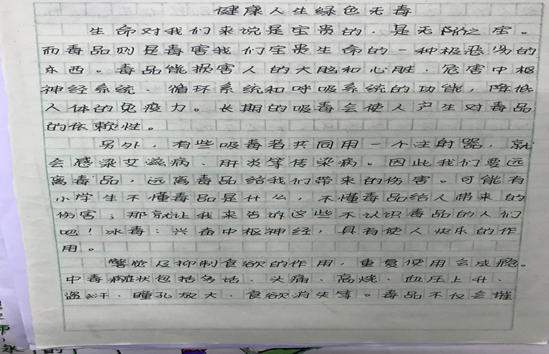 健康人生绿色无毒
生命对我们来说是宝贵的，是无价之宝。
而毒品则是毒害我们宝贵生命的一种极恶劣的
东西。毒品能损害人的大脑和心脏，危害中枢
神经系统、循环系统和呼吸系统的功能，降低
人体的免疫力。长期的吸毒会使人产生对毒品
的依赖性。
另外，有些吸毒者共同用一个注射器，就
会感染艾滋病、肝炎等传染病。因此我们要远
离毒品，远离毒品给我们带来的伤害。可能有
小学生不懂毒品是什么，不懂毒品给人带来的
伤害，那就让我来告诉这些不认识毒品的人们
吧！冰毒：兴奋中枢神经，具有使人快乐的作
用。
警觉及抑制食欲的作用，重复使用会成瘾。
中毒症状包括多话、头痛、高烧、血压上升、
盗汗、瞳孔放大、食欲消失等。毒品不仅会摧